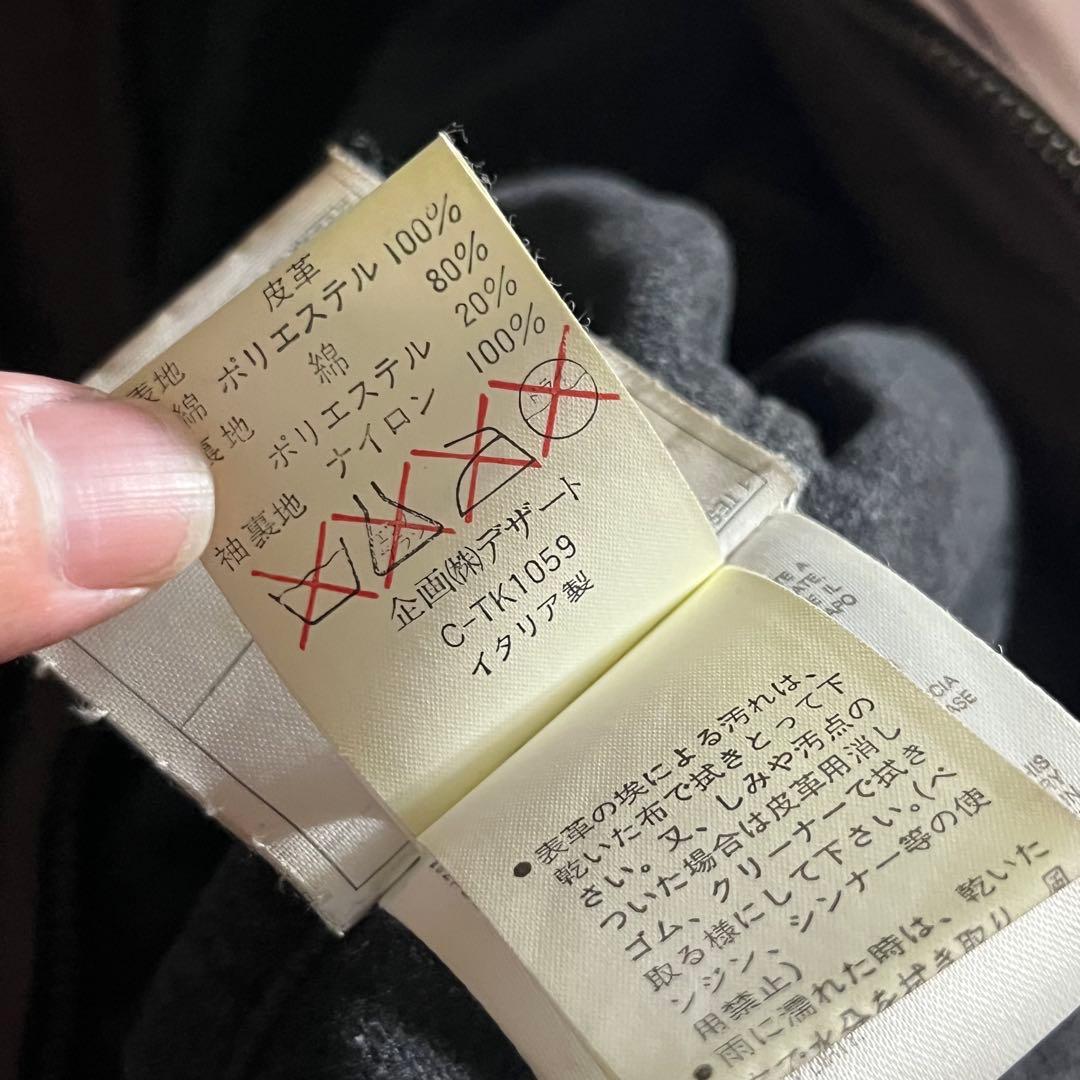 表地 皮革
綿 ポリエステル 100%
裏地 綿 80%
ポリエステル 20%
袖裏地 ナイロン 100%
エンソ サラシ
ドライ
企画(株)デザート
C-TK1059
イタリア製
• 表革の埃による汚れは、
乾いた布で拭きとって下
さい。又、しみや汚点の
ついた場合は皮革用消し
ゴム、クリーナーで拭き
取る様にして下さい。(ベ
ンジン、シンナー等の使
用禁止)
• 雨に濡れた時は、乾いた
で水分を拭き取り
TE A
ATE, IL
APO
CIA
ASE
HIS